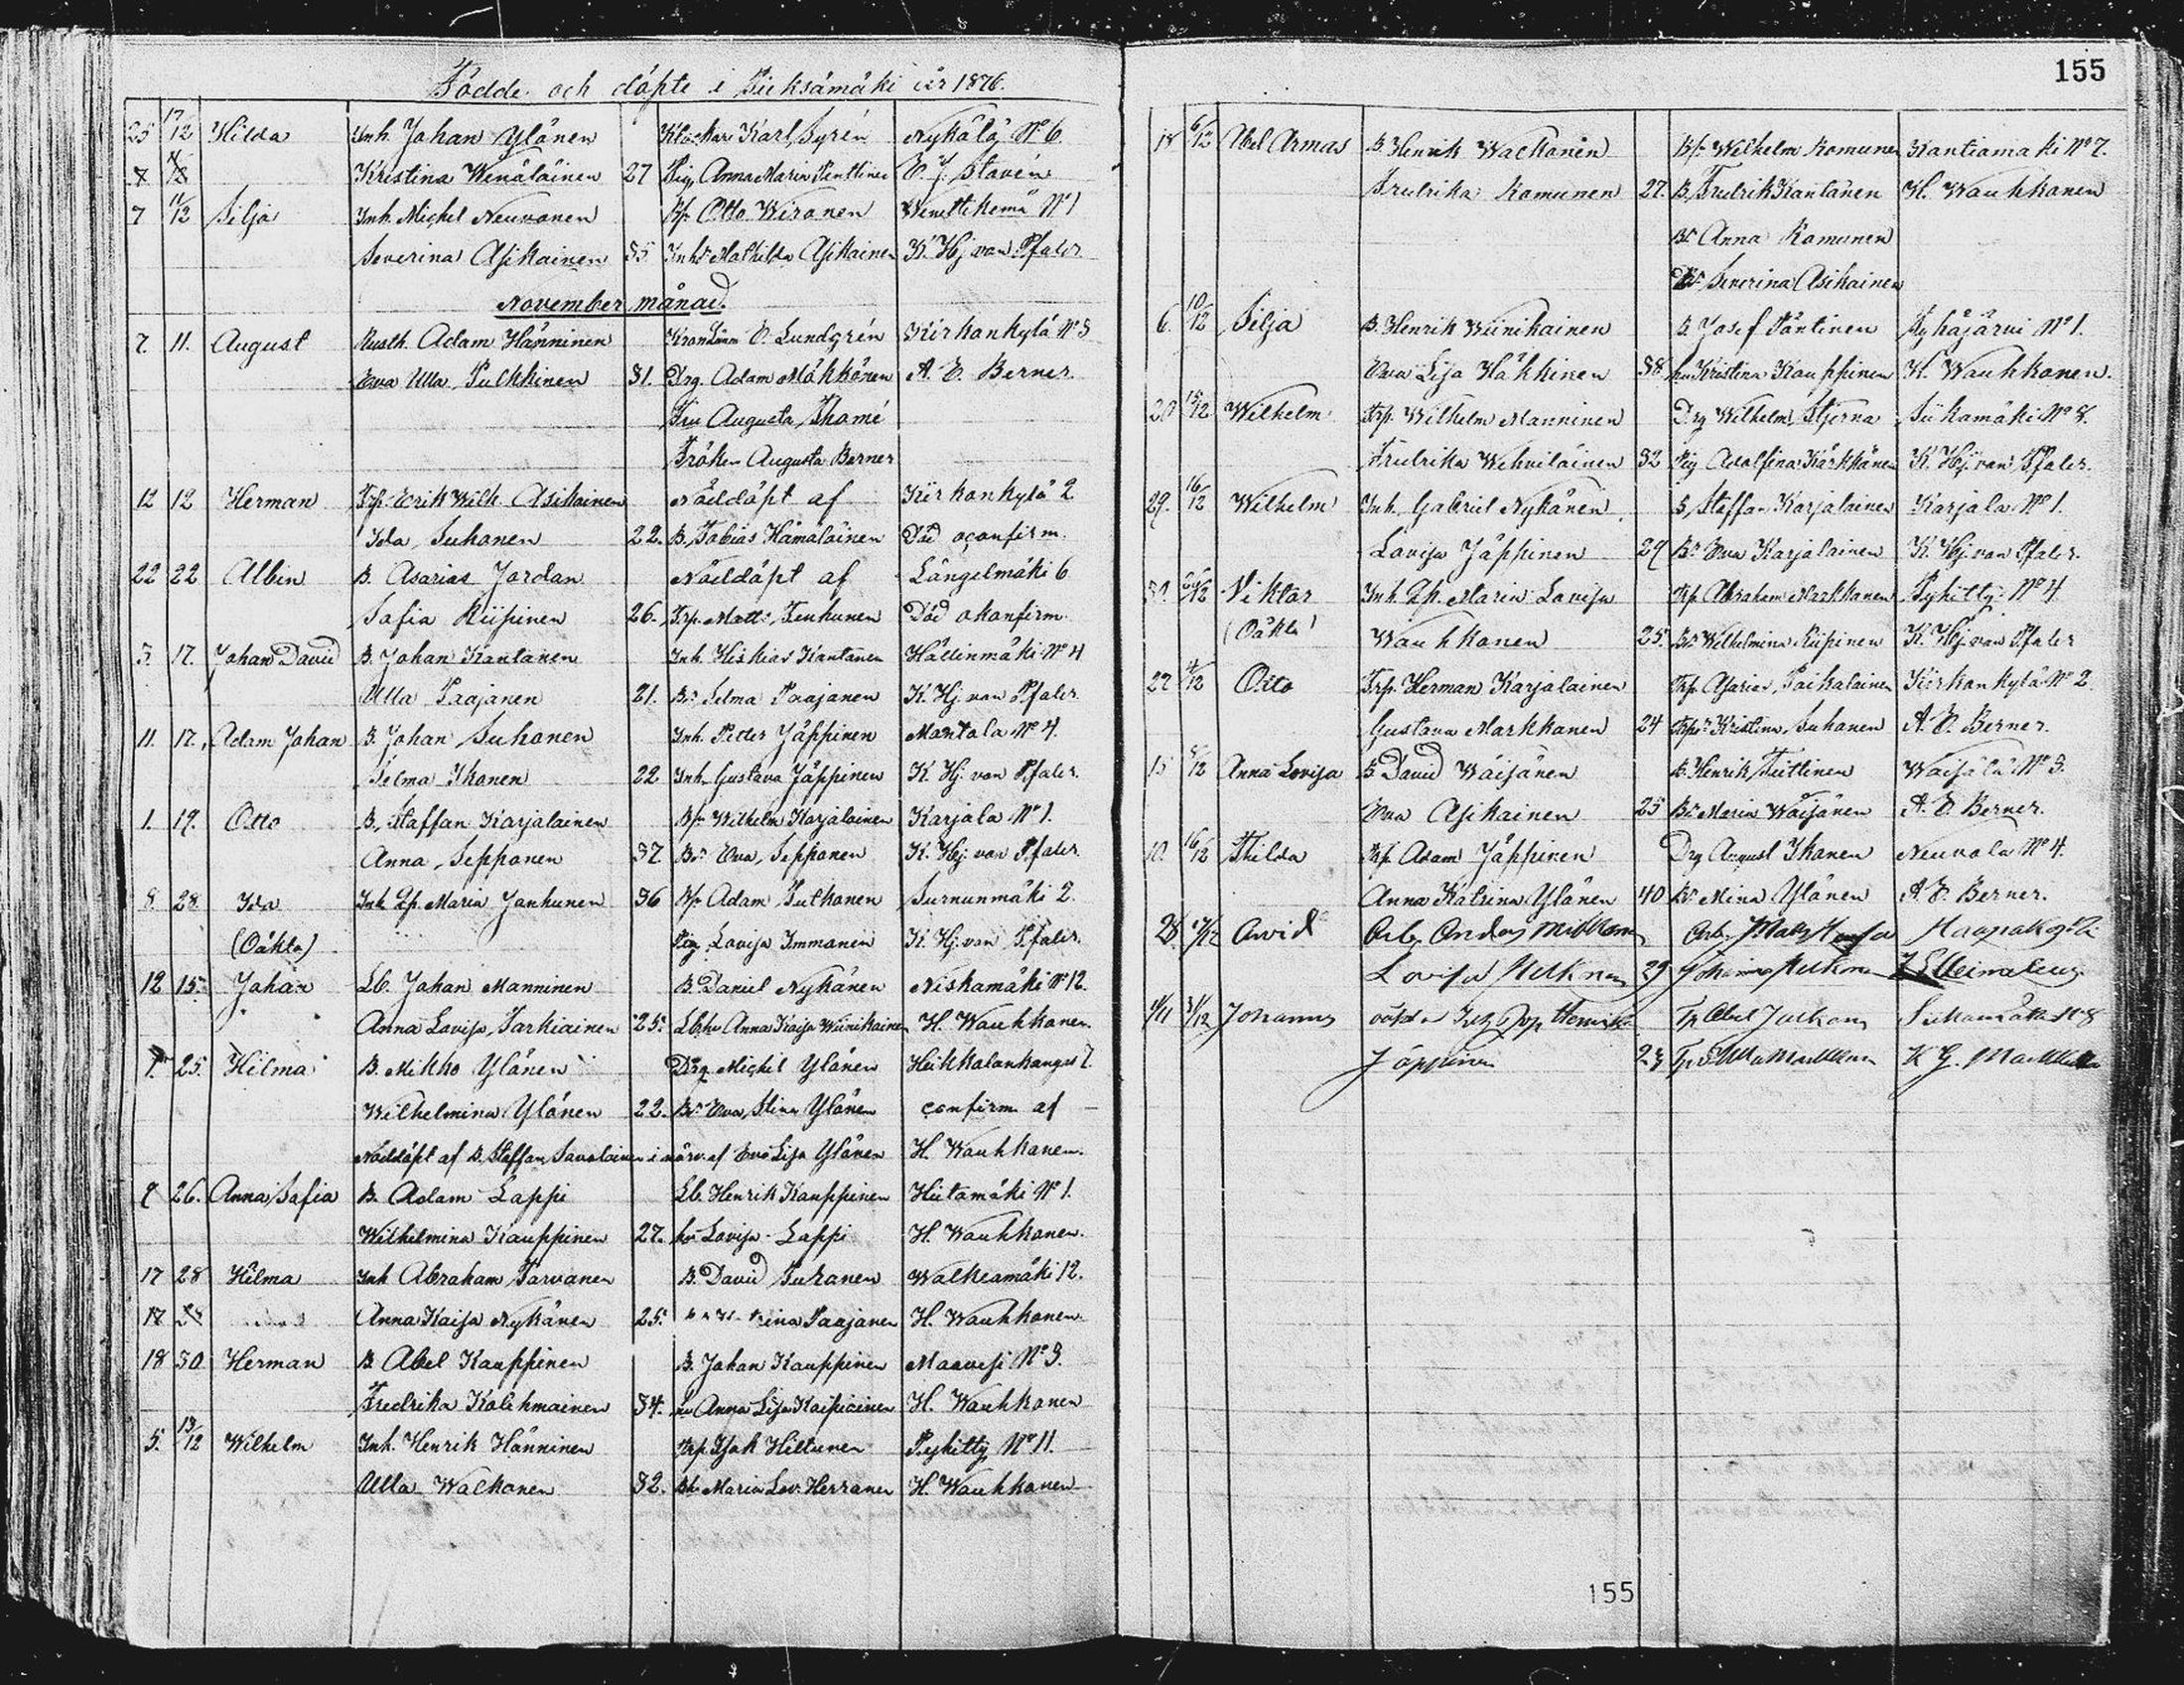 155
Födde och döpte i Pieksämäki år 1876.
25 17/12 Hilda Inh. Johan Ylönen Klockare Karl Syrén Nykälä No 6.
Kristina Wenäläinen 27 Pig. Anna Maria Penttinen E. J. Stavén
7 11/12 Silja Inh. Michel Neuvonen Bp. Otto Wironen Wenettikemä No 1
Severina Asikainen 35 Inhs Mathilda Asikainen K. Hj. von Pfaler
November månad.
7. 11. August Rusth. Adam Hänninen KronLänm E. Lundgrén Kirkonkylä No 3
Eva Ulla Pulkkinen 31. Drg. Adam Mökkönen A. E. Berner.
Fru Augusta Thomé
Fröken Augusta Berner
12 12 Herman Trp. Erik Wilh. Asikainen Nöddöpt af Kirkonkylä 2
Ida Suhonen 22. B. Tobias Hämäläinen Död oconfirm.
22 22 Albin B. Asarias Jordan Nöddöpt af Längelmäki 6
Sofia Riipinen 26. Trp. Matts Tenhunen Död okonfirm.
3. 17. Johan David B. Johan Kantanen Inh. Hiskias Kantanen Hällinmäki No 4
Ulla Paajanen 21. Bs Selma Paajanen K. Hj. von Pfaler
11. 17. Adam Johan B. Johan Suhonen Inh. Petter Jäppinen Montola No 4.
Selma Ikonen 22. Inh. Gustava Jäppinen K. Hj. von Pfaler.
1. 19. Otto B. Staffan Karjalainen Bp. Wilhelm Karjalainen Karjala No 1.
Anna Sepponen 37. Bs Eva Sepponen K. Hj. von Pfaler
8. 28 Ida Inh. Qp. Maria Janhunen 36 Bp. Adam Putkonen Surnunmäki 2.
(Oäkta) Pig. Lovisa Immonen K. Hj. von Pfaler.
12 15. Johan Lb. Johan Manninen B. Daniel Nykänen Niskamäki No 12.
Anna Lovisa Tarkiainen 25. Lbhu Anna Kaisa Wiinikainen H. Wauhkonen.
7. 25. Hilma B. Mikko Ylönen Drg Michel Ylönen Heikkalankangas 7.
Wilhelmina Ylönen 22. Bs Eva Stina Ylönen confirm. af
Nöddöpt af B. Staffan Savolainen i närv. af Eva Lisa Ylönen H. Wauhkonen.
9 26. Anna Sofia B. Adam Lappi Lb. Henrik Kauppinen Hiitamäki No 1.
Wilhelmina Kauppinen 27. hu Lovisa Lappi H. Wauhkonen.
17 28 Hilma Inh Abraham Tarvanen B. David Puranen Walkeamäki 12.
17 Anna Kaisa Nykänen 25. Paajanen H. Wauhkonen.
18 30 Herman B. Abel Kauppinen B. Johan Kauppinen Maavesi No 3.
Fredrika Kolehmainen 34. hu Anna Lisa Kaipiainen H. Wauhkonen
5. 13/12 Wilhelm Inh. Henrik Hänninen Trp. Isak Hiltunen Pyhitty No 11.
Ulla Walkonen 32. Maria Lov. Herranen H. Wauhkonen
18 6/12 Abel Armas B. Henrik Walkonen Bp. Wilhelm Komunen Kantiomäki No 7.
Fredrika Komunen 27. B. Fredrik Kantanen H. Wauhkonen
Bs Anna Komunen
Severina Asikainen
6. 10/12 Silja B. Henrik Wiinikainen B. Josef Pöntinen Pyhäjärvi No 1.
Eva Lisa Häkkinen 38 hu Kristina Kauppinen H. Wauhkonen.
20 15/12 Wilhelm Trp. Wilhelm Manninen Drg Wilhelm Stjerna Siikamäki No 8.
Fredrika Wehviläinen 32 Pig Adolfina Kärkkänen K. Hj. von Pfaler.
29. 16/12 Wilhelm Inh. Gabriel Nykänen B. Staffan Karjalainen Karjala No 1.
Lovisa Jäppinen 29 Bs Eva Karjalainen K. Hj. von Pfaler.
30. Viktor Inh. Qp. Maria Lovisa Trp. Abraham Markkanen Pyhitty No 4
(Oäkta) Wauhkonen 25. Bs Wilhelmina Riipinen K. Hj. von Pfaler
22 4/12 Otto Trp. Herman Karjalainen Trp. Asarias Paikalainen Kirkonkylä No 2
Gustava Markkanen 24 Trps Kristina Suhonen A. E. Berner.
15 5/12 Anna Lovisa B. David Wäisänen B. Henrik Teittinen Waisälä No 3.
Eva Asikainen 25 Bs Maria Wäisänen A. E. Berner.
10. 16/12 Thilda Bp. Adam Jäppinen Drg August Ikonen Neuvola No 4.
Anna Katrina Ylönen 40 Bs Mina Ylönen A. E. Berner.
28 Arvid Arb. Anders Mikkonen Arb. Haapakoski
Lovisa 29
Johannes oäkta Henrika Tp Abel Siikamäki No 8
Jäppinen 23 K G.
155